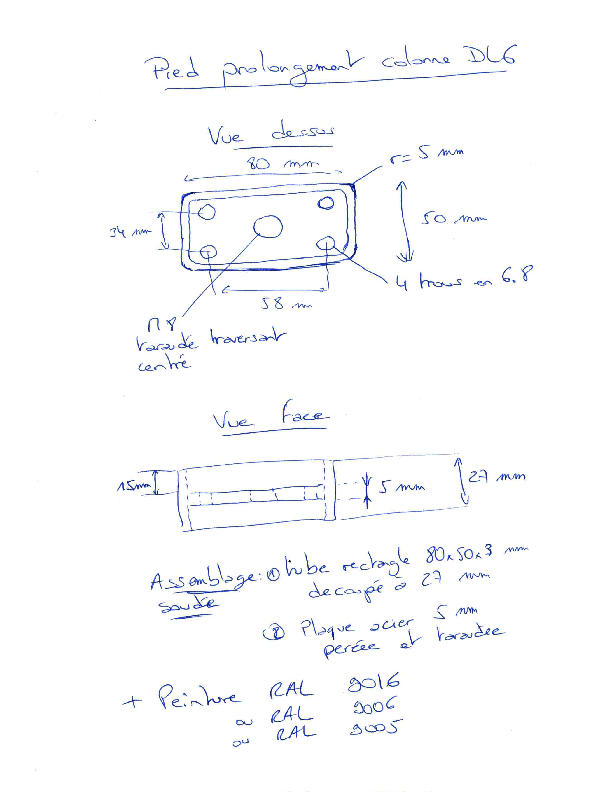 Pied prolongement colonne DL6
Vue dessus
80 mm
r= 5 mm
34 mm
50 mm
58 m
4 trous en 6.8
M8
taraudé traversant
centré
Vue face
15mm
5 mm
27 mm
Assemblage: ① tube rectangle 80x50x3 mm
soudé
decoupé à 27 mm
② Plaque acier 5 mm
percée et taraudee
+ Peinture RAL 9016
ou RAL 9006
ou RAL 9005